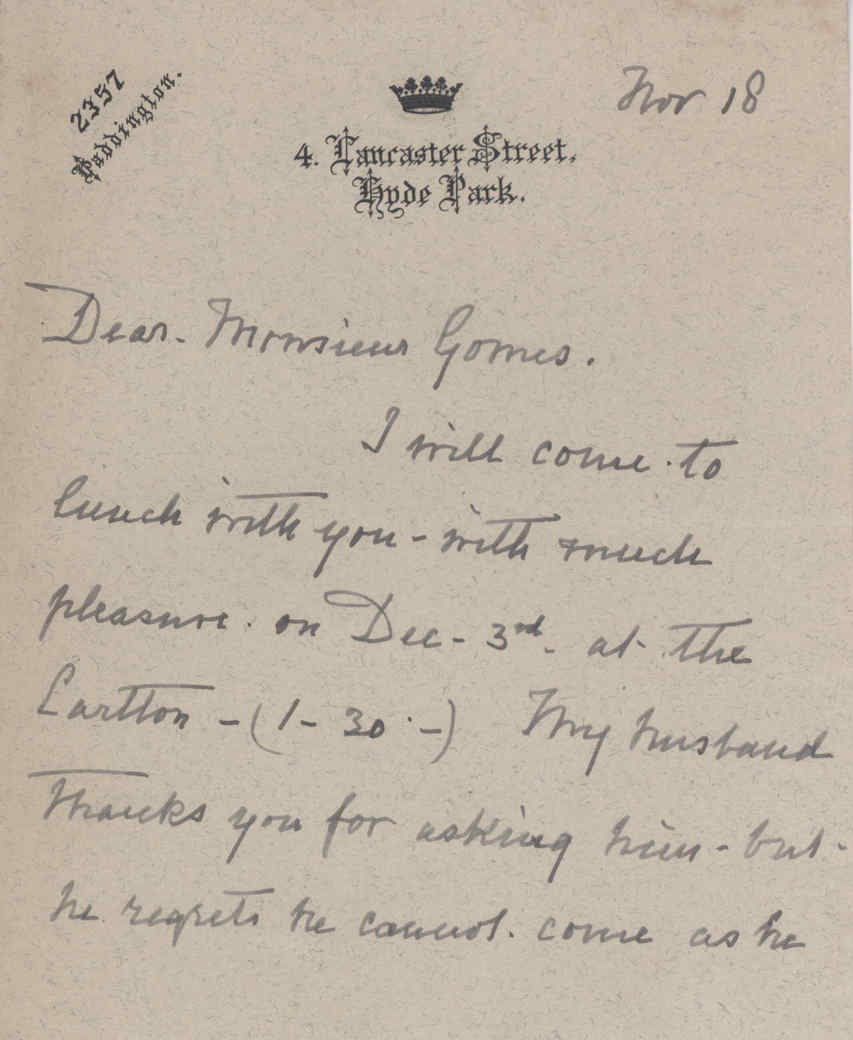 2357
Paddington.
Nov 18
4. Lancaster Street,
Hyde Park.
Dear. Monsieur Gomes.
I will come. to
lunch with you - with much
pleasure. on Dec - 3rd. at the
Carlton - (1 - 30 -) My husband
thanks you for asking him - but -
he regrets he cannot. come as he